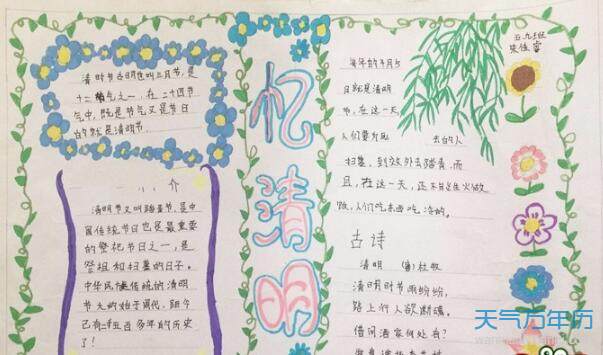 清明节古明也叫三月节,是
十二 气之一,在二十四节
气中,既是节气又是节日
的就是清明节。
小 介
清明节又叫踏青节,是中
国传统节日也是最重要
的祭祀节日之一,是
祭祖和扫墓的日子。
中华民族传统的清明
节大约始于周代,距今
已有二千五百多年的历史
了!
忆清明
每年的4月5
日就是清明
节,在这一天,
人们要为 去的人
扫墓,到郊外去踏青,而
且,在这一天,还不能生火做
饭,人们吃东西吃 冷的。
古诗
清明 (唐) 杜牧
清明时节雨纷纷,
路上行人欲断魂。
借问酒家何处有?
五九班
天气万年历